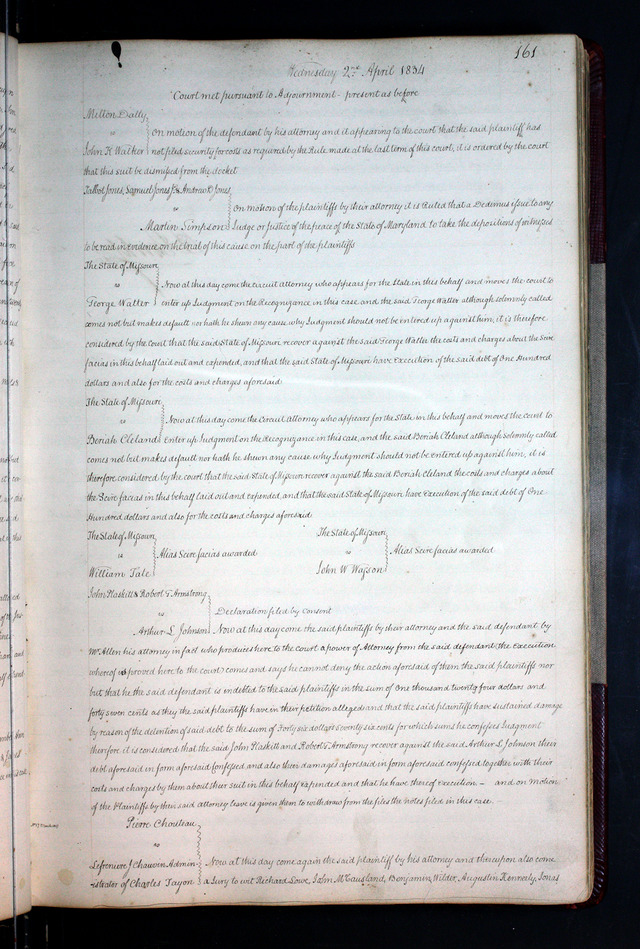 161
Wednesday 2nd April 1834
Court met pursuant to Adjournment - present as before
Melton Dally
vs On motion of the defendant by his attorney and it appearing to the court that the said plaintiff has
John K Walker not filed security for costs as required by the Rule made at the last term of this court, it is ordered by the court
that this suit be dismissed from the docket
Talbot Jones, Samuel Jones Jr & Andrew D Jones
vs On motion of the plaintiffs by their attorney it is Ruled that a Dedimus issue to any
Martin Simpson Judge or Justice of the peace of the State of Maryland to take the depositions of witnesses
to be read in evidence on the trial of this cause on the part of the plaintiffs
The State of Missouri
vs Now at this day come the circuit attorney who appears for the State in this behalf and moves the court to
George Walter enter up Judgment on the Recognizance in this case and the said George Walter although solemnly called
comes not but makes default nor hath he shewn any cause why Judgment should not be entered up against him, it is therefore
considered by the court that the said State of Missouri recover against the said George Walter the costs and charges about the Scire
facias in this behalf laid out and expended, and that the said State of Missouri have execution of the said debt of One Hundred
dollars and also for the costs and charges aforesaid
The State of Missouri
vs Now at this day come the Circuit Attorney who appears for the State in this behalf and moves the court to
Beriah Cleland enter up Judgment on the Recognizance in this case, and the said Beriah Cleland although solemnly called
comes not but makes default nor hath he shewn any cause why Judgment should not be entered up against him, it is
therefore considered by the court that the said State of Missouri recover against the said Beriah Cleland the costs and charges about
the Scire facias in this behalf laid out and expended and that the said State of Missouri have Execution of the said debt of One
Hundred dollars and also for the costs and charges aforesaid
The State of Missouri
vs Alias Scire facias awarded
William Tate
The State of Missouri
vs Alias Scire facias awarded
John W Wasson
John Plaskitt & Robert T Armstrong
vs Declaration filed by Consent
Arthur L Johnson Now at this day come the said plaintiffs by their attorney and the said defendant by
Mr Allen his attorney in fact who produces here to the court a power of Attorney from the said defendant, the Execution
whereof is proved here to the court, comes and says he cannot deny the action aforesaid of them the said plaintiffs nor
but that he the said defendant is indebted to the said plaintiffs in the sum of one thousand twenty four dollars and
forty seven cents as they the said plaintiffs have in their petition alleged and that the said plaintiffs have sustained damage
by reason of the detention of said debt to the sum of Forty six dollars seventy six cents for which sums he confesses Judgment
therefore it is considered that the said John Plaskett and Robert T Armstrong recover against the said Arthur L Johnson their
debt aforesaid in form aforesaid Confessed and also their damages aforesaid in form aforesaid confessed together with their
costs and charges by them about their suit in this behalf expended and that he have thereof execution — and on motion
of the Plaintiffs by their said attorney leave is given them to withdraw from the files the notes filed in this case
Pierre Chouteau
vs
Lefreniere J Chauvin Admin- Now at this day come again the said plaintiff by his attorney and thereupon also come
istrator of Charles Tayon a Jury to wit Richard Lowe, John McCausland, Benjamin Wilder, Augustin Kennerly, Jonas